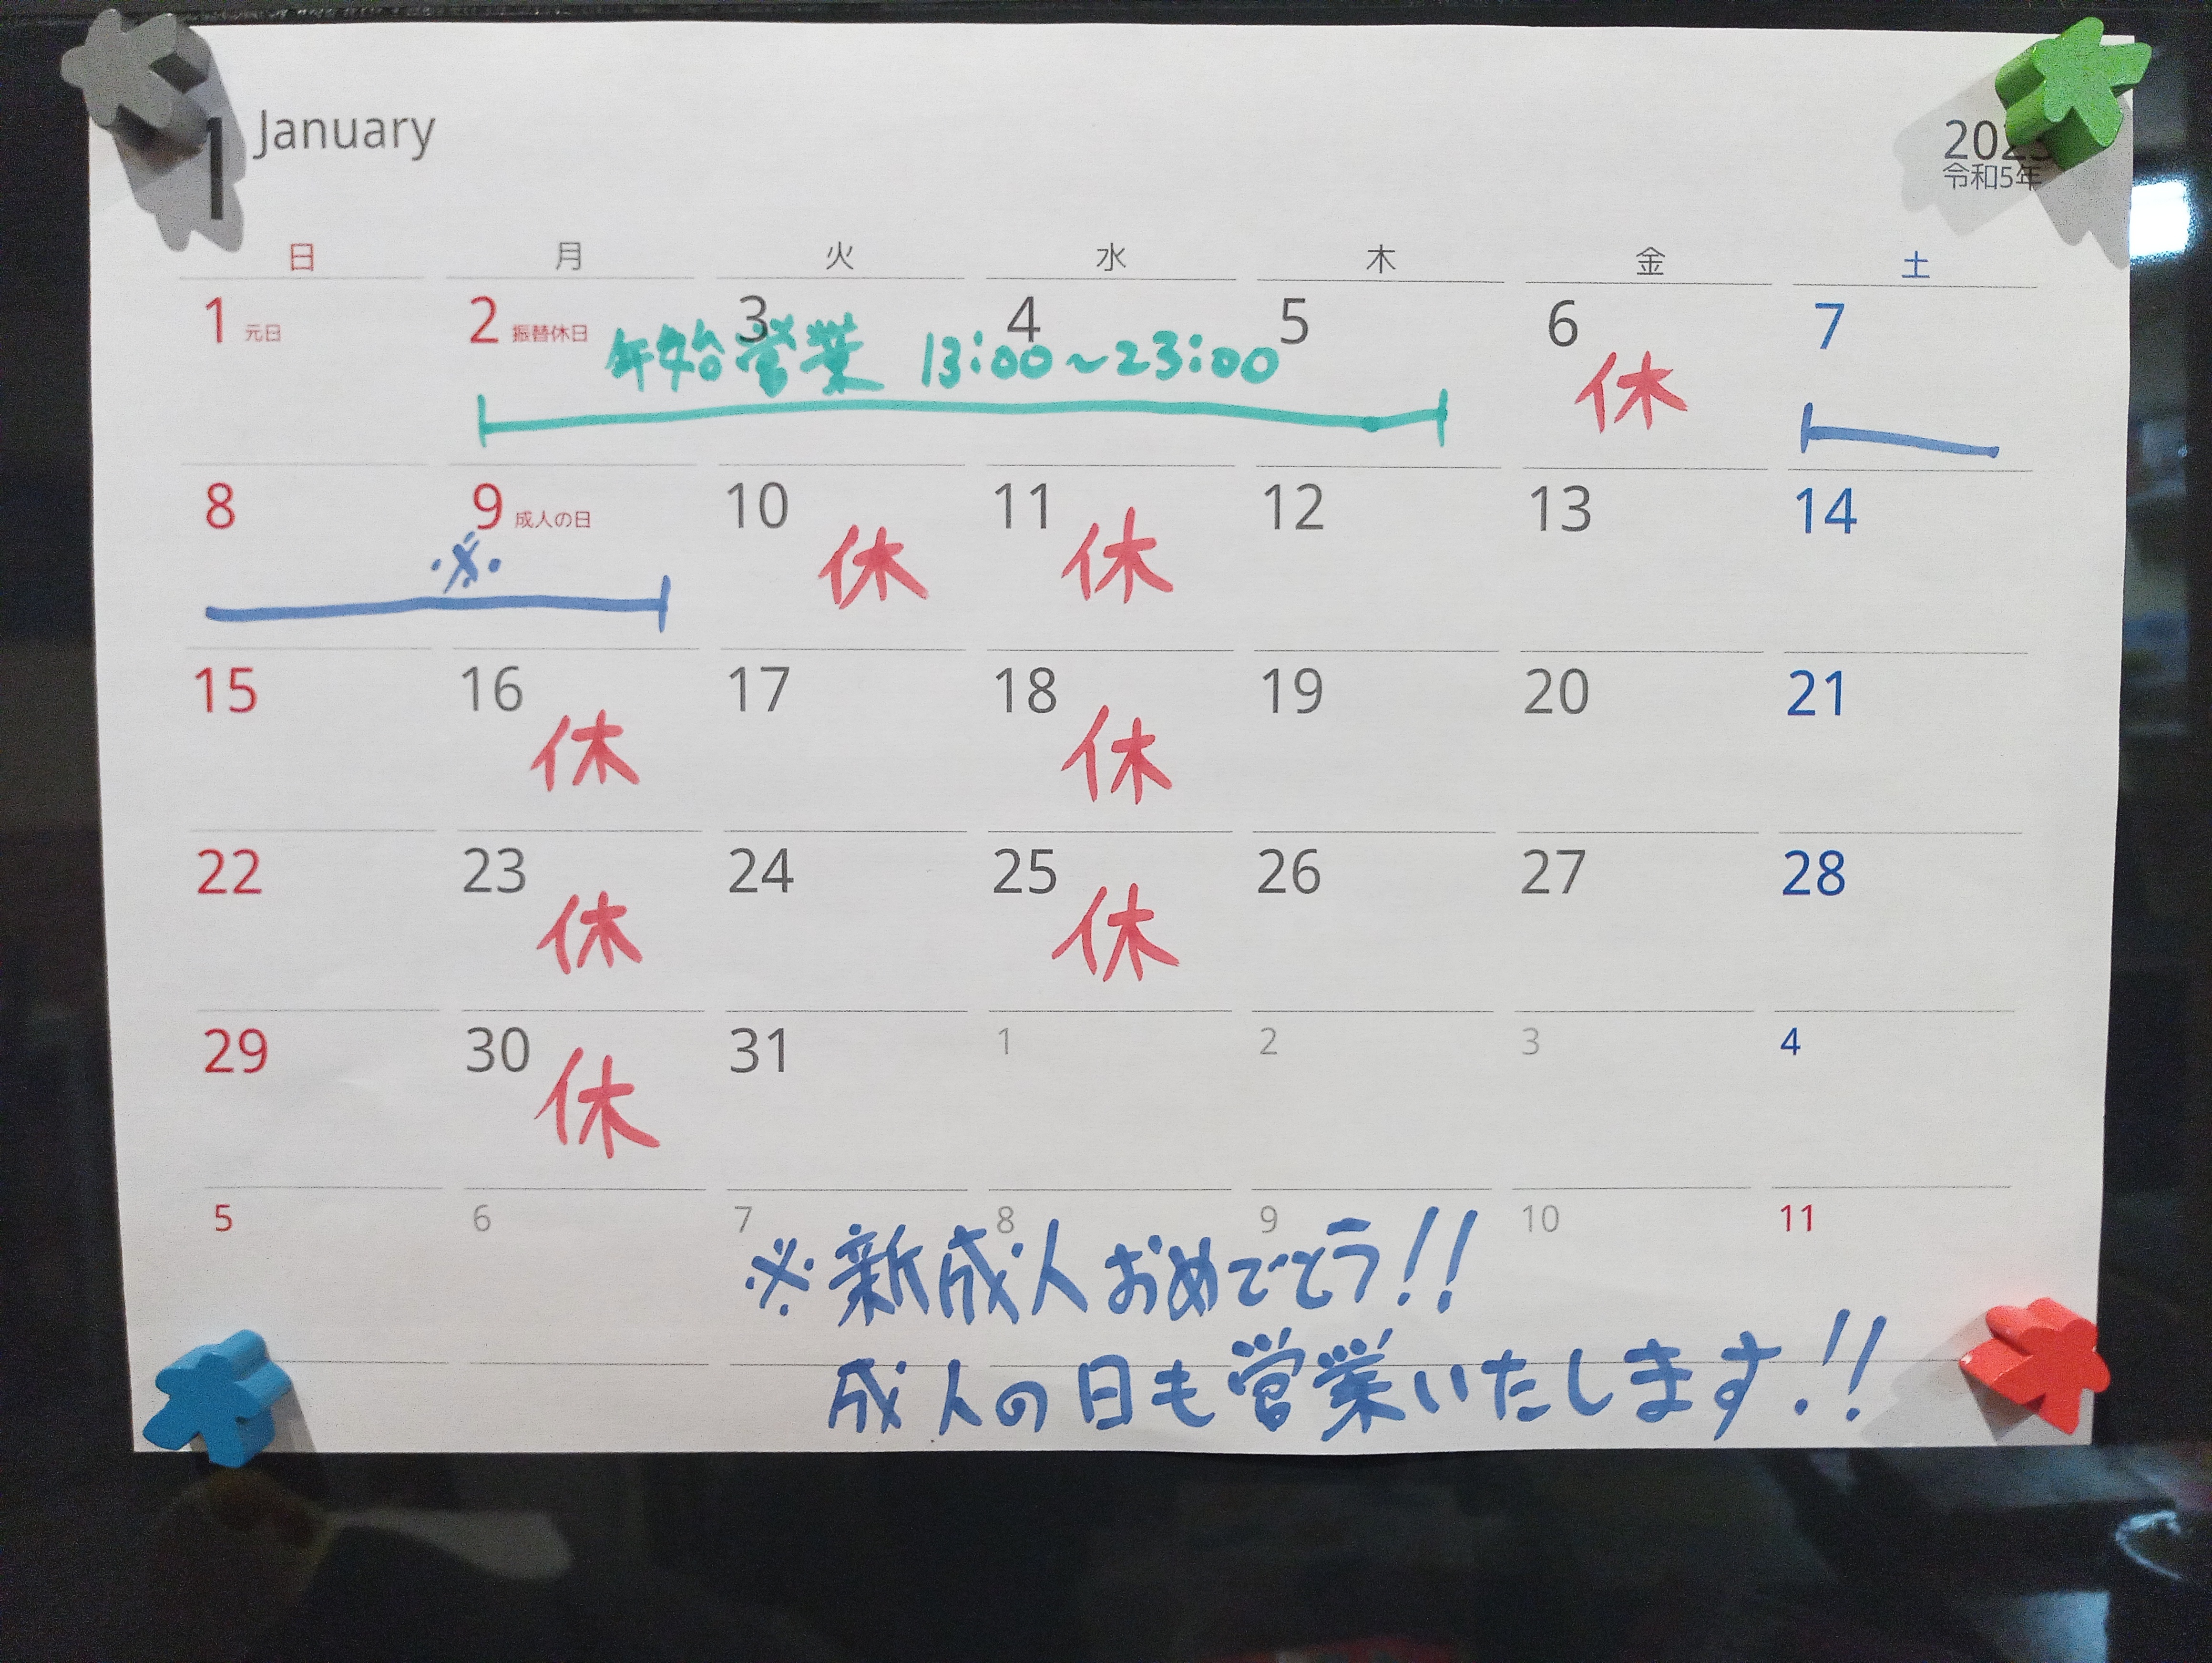 1 January
2023
令和5年
日 月 火 水 木 金 土
1 元日 2 振替休日 3 4 5 6 7
年始営業 13:00~23:00
休
8 9 成人の日 10 11 12 13 14
※ 休 休
15 16 17 18 19 20 21
休 休
22 23 24 25 26 27 28
休 休
29 30 31 1 2 3 4
休
5 6 7 8 9 10 11
※新成人おめでとう!!
成人の日も営業いたします!!